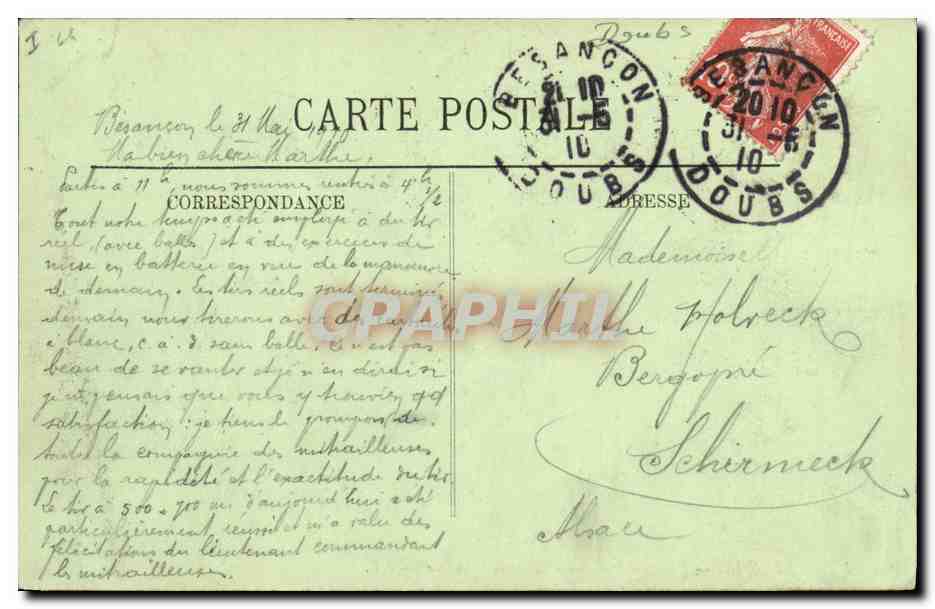 Doubs
BESANÇON
21 10
31 -5
10
DOUBS
FRANÇAISE
BESANÇON
20 10
31 -5
10
DOUBS
CARTE POSTALE
Besançon le 31 Mai
Ma bien chère Marthe,
CORRESPONDANCE
ADRESSE
Partis à 11h, nous sommes rentrés à 4h 1/2
Tout notre temps a été employé à du tir
réel (avec balles) et à des exercices de
mise en batterie en vue de la manoeuvre
de demain. Les tirs réels sont terminés
demain nous tirerons avec des
à blanc, c. à d. sans balle. Ce n'est pas
beau de se vanter et je n'en dirais si
je ne pensais que vous y trouviez qq
satisfaction : je tiens le pompon de
toute la compagnie des mitrailleuses
pour la rapidité et l'exactitude du tir.
Le tir à 500 à 700 m d'aujourd'hui a été
particulièrement réussi et m'a valu des
félicitations du lieutenant commandant
les mitrailleuses.
CPAPHIL
Mademoiselle
Marthe Holveck
Bergopré
Schirmeck
Alsace